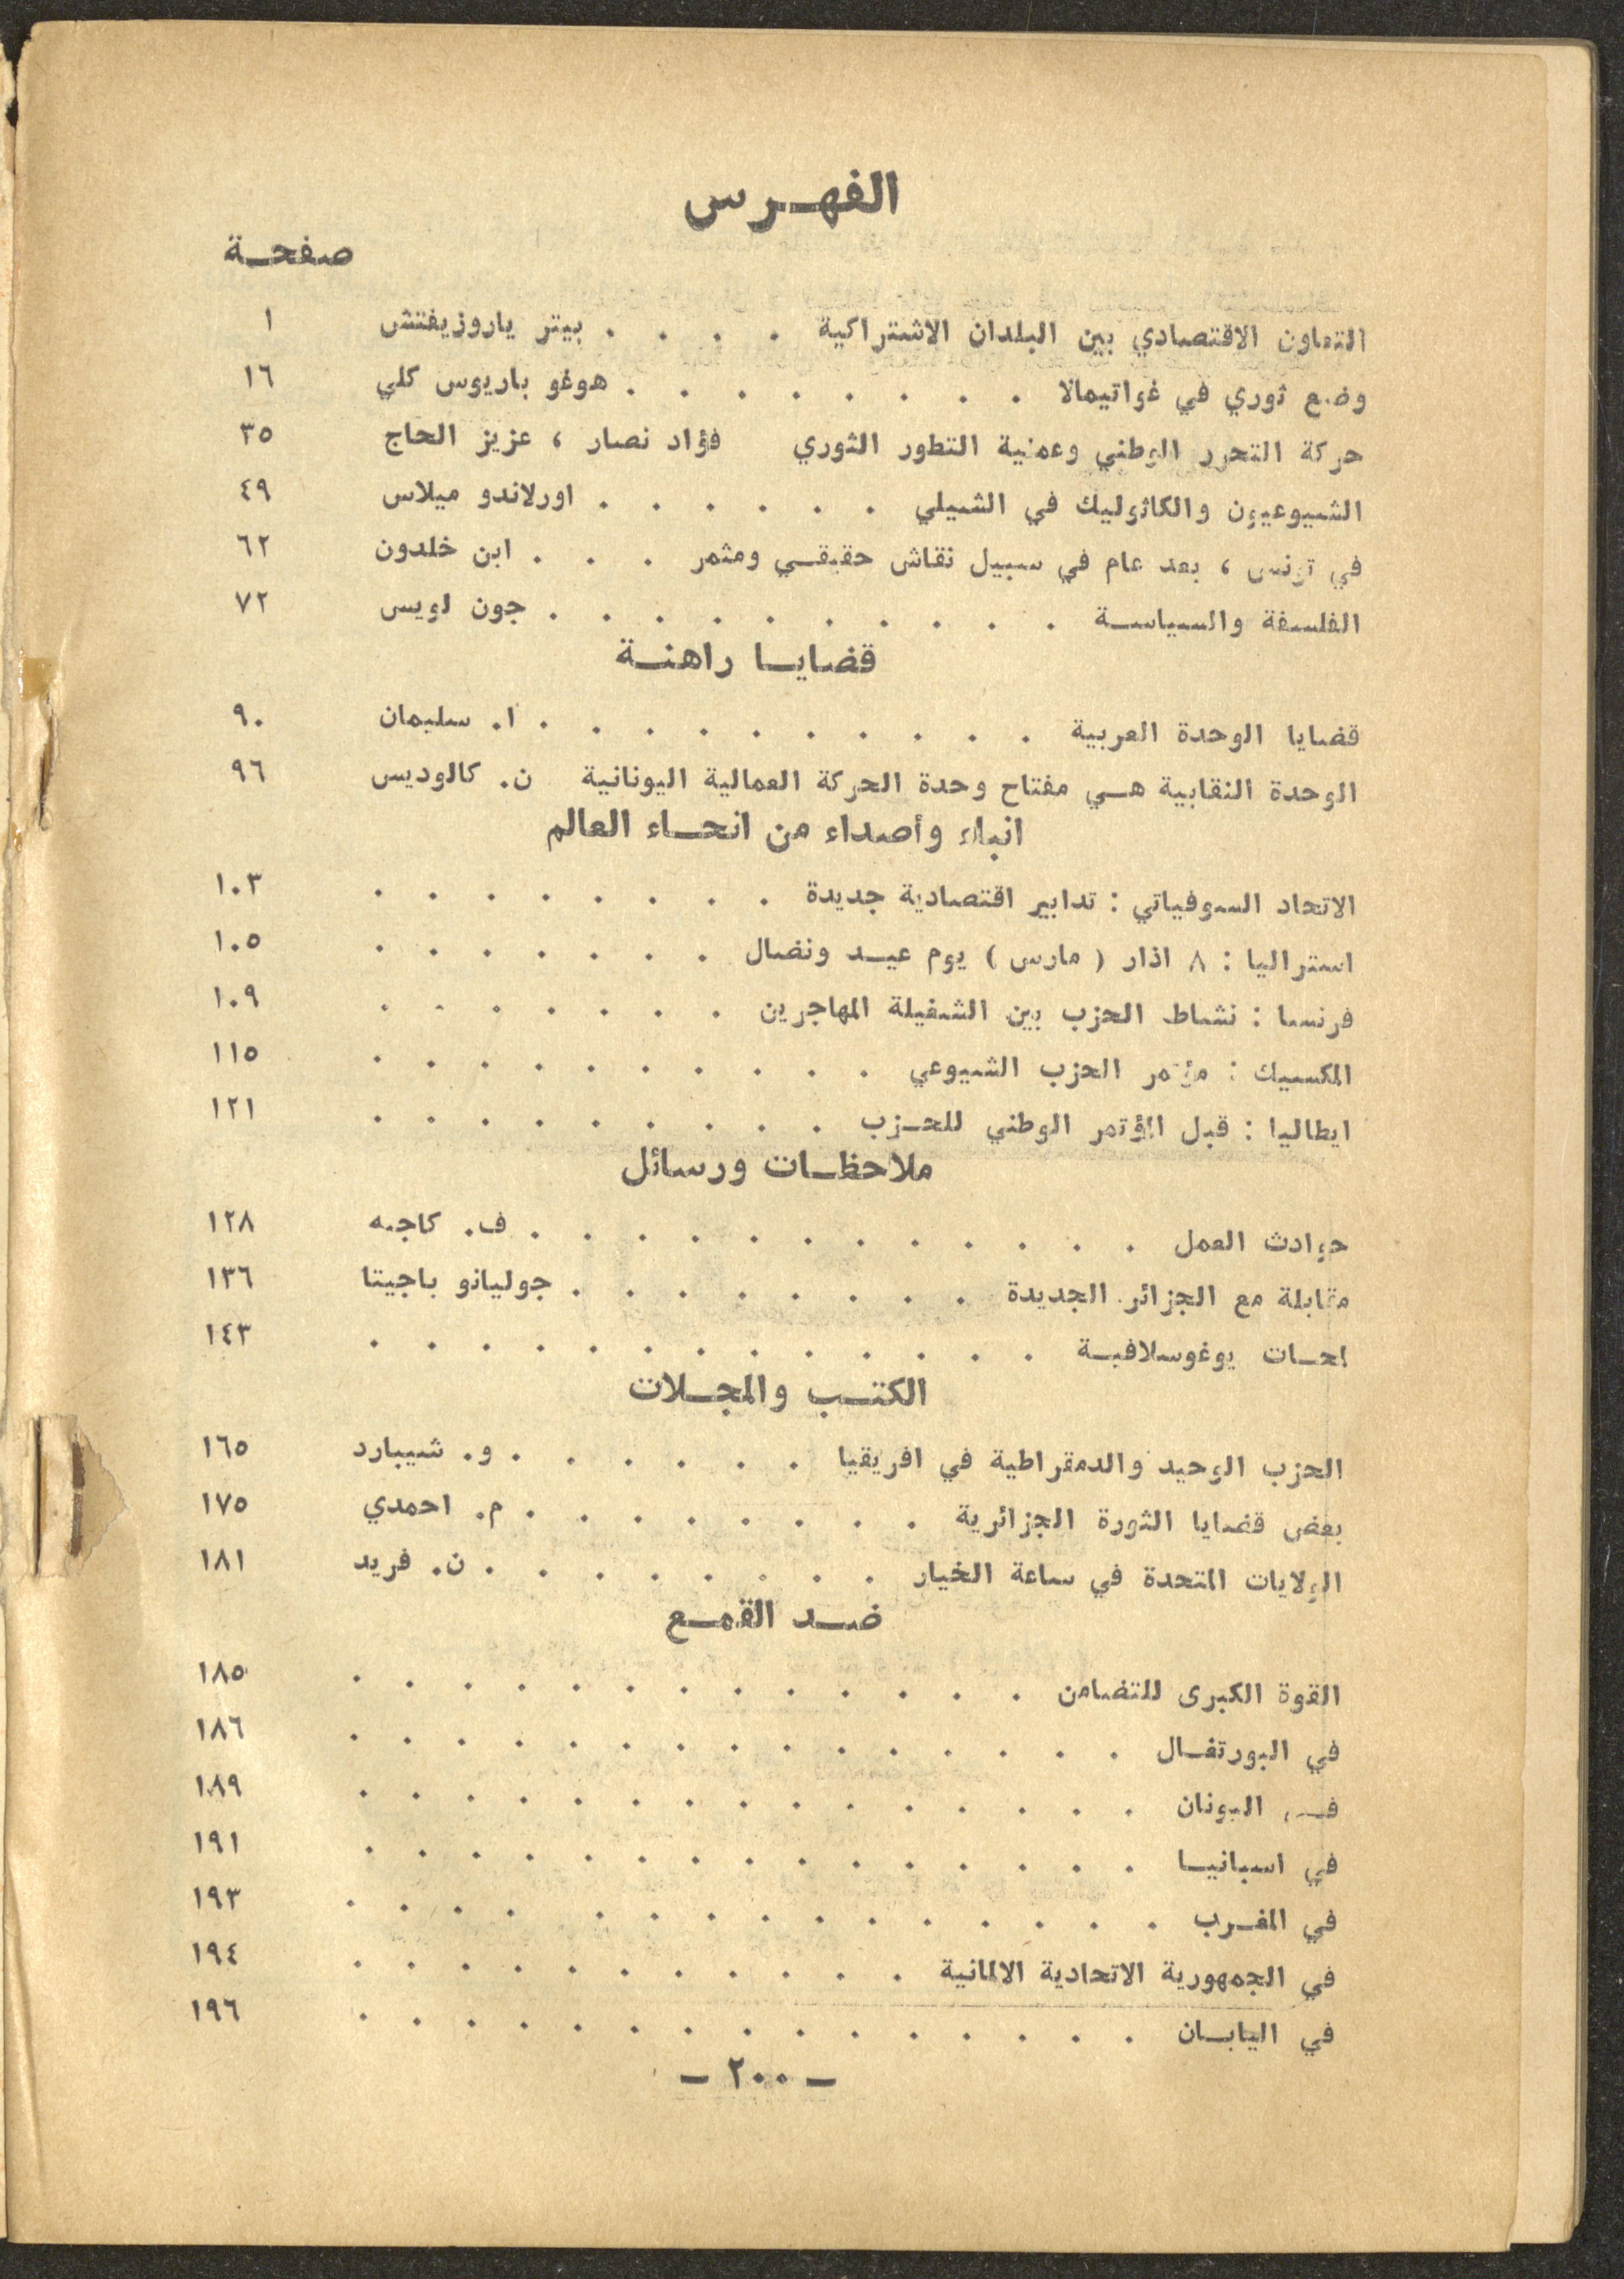 الفهـرس
صفحـة
التعاون الاقتصادي بين البلدان الاشتراكية . . . . بيتر ياروزيفتش ١
وضع ثوري في غواتيمالا . . . . . . . . هوغو باريوس كلي ١٦
حركة التحرر الوطني وعملية التطور الثوري فؤاد نصار ، عزيز الحاج ٣٥
الشيوعيون والكاثوليك في الشيلي . . . . . . اورلاندو ميلاس ٤٩
في تونس ، بعد عام في سبيل نقاش حقيقـي ومثمر . . . ابن خلدون ٦٢
الفلسفة والسياسـة . . . . . . . . . . جون لويس ٧٢
قضايـا راهنـة
قضايا الوحدة العربية . . . . . . . . . . ا. سليمان ٩٠
الوحدة النقابية هـي مفتاح وحدة الحركة العمالية اليونانية ن. كالوديس ٩٦
انباء وأصداء من انحـاء العالم
الاتحاد السوفياتي : تدابير اقتصادية جديدة . . . . . . . . ١٠٣
استراليا : ٨ اذار ( مارس ) يوم عيـد ونضال . . . . . . . ١٠٥
فرنسا : نشاط الحزب بين الشغيلة المهاجرين . . . . . . . ١٠٩
المكسيك : مؤتمر الحزب الشيوعي . . . . . . . . . . ١١٥
ايطاليا : قبل المؤتمر الوطني للحـزب . . . . . . . . . ١٢١
ملاحظـات ورسائل
حوادث العمل . . . . . . . . . . . . ف. كاجبه ١٢٨
مقابلة مع الجزائر الجديدة . . . . . . . . جوليانو باجيتا ١٣٦
لمحـات يوغوسلافيـة . . . . . . . . . . . . . ١٤٣
الكتـب والمجـلات
الحزب الوحيد والدمقراطية في افريقيا . . . . . . و. شيبارد ١٦٥
بعض قضايا الثورة الجزائرية . . . . . . . . م. احمدي ١٧٥
الولايات المتحدة في ساعة الخيار . . . . . . . . ن. فريد ١٨١
ضـد القمـع
القوة الكبرى للتضامن . . . . . . . . . . . . . ١٨٥
في البورتغـال . . . . . . . . . . . . . . . ١٨٦
فـي اليونان . . . . . . . . . . . . . . . ١٨٩
في اسبانيـا . . . . . . . . . . . . . . . ١٩١
في المغـرب . . . . . . . . . . . . . . . ١٩٣
في الجمهورية الاتحادية الالمانية . . . . . . . . . . . ١٩٤
في اليابـان . . . . . . . . . . . . . . . ١٩٦
ـ ٢٠٠ ـ